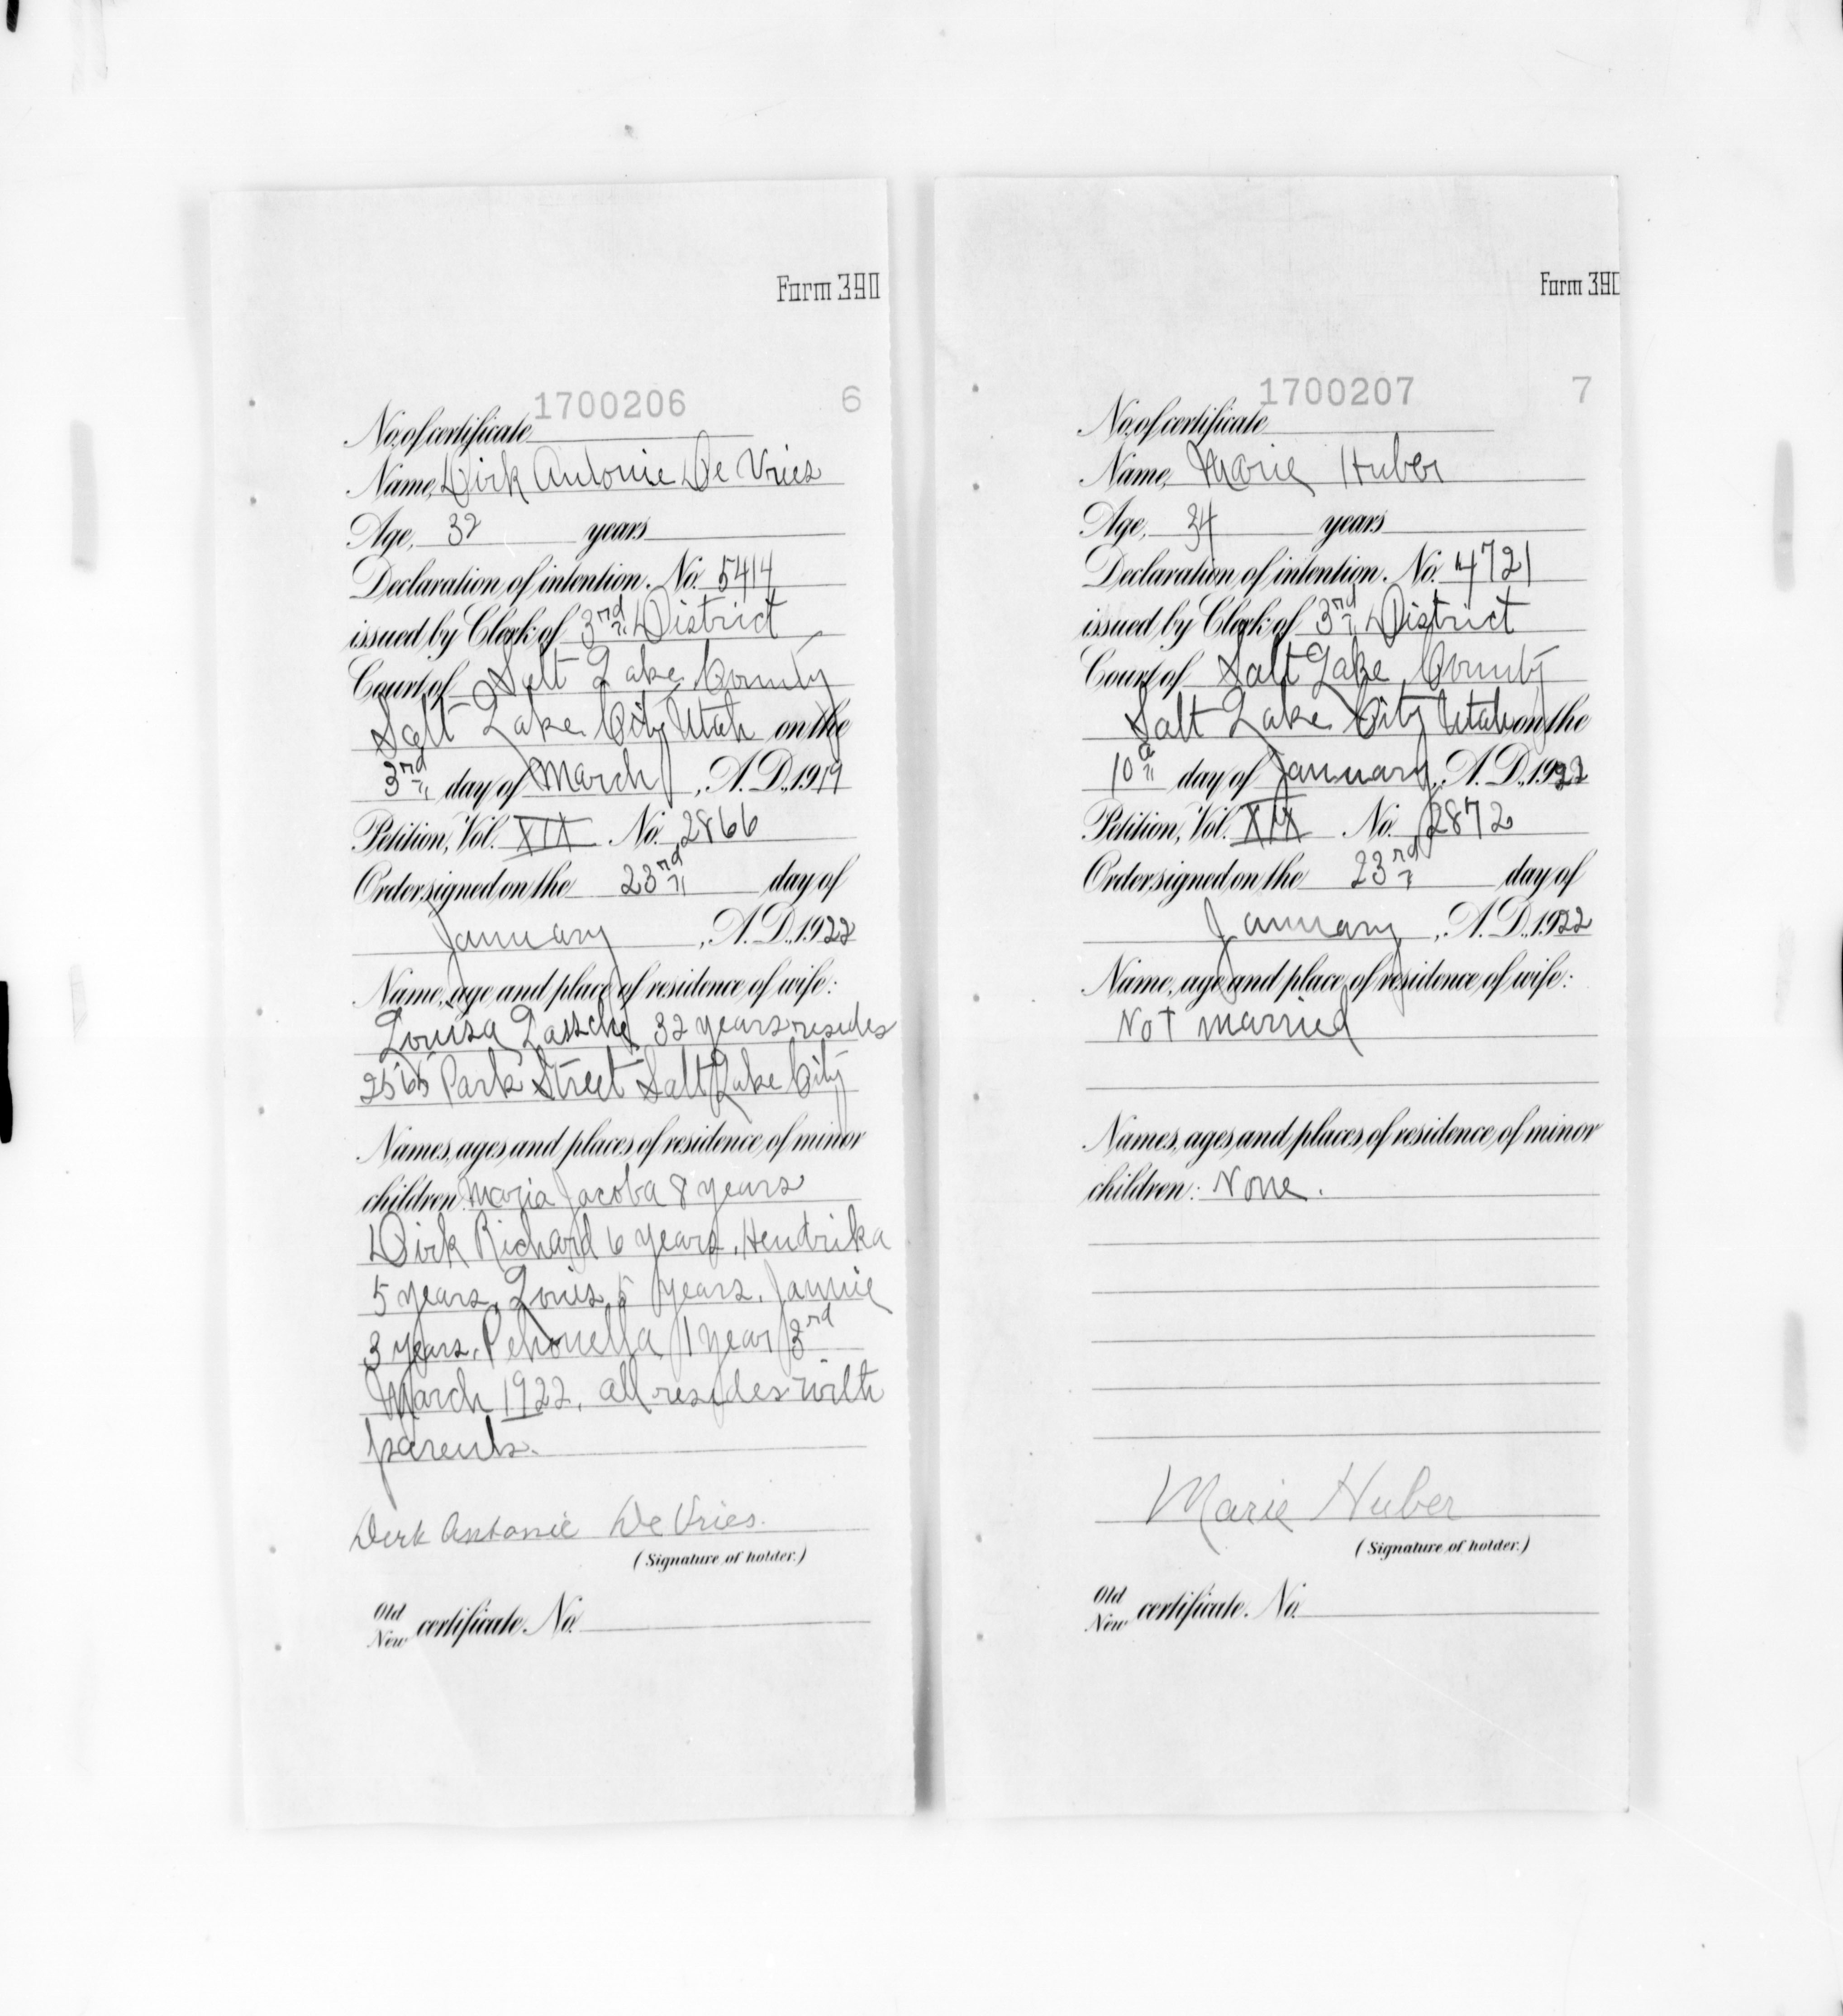 Form 390
1700206 6
No. of certificate
Name, Dirk Antonie De Vries
Age, 32 years
Declaration of intention. No. 5414
issued by Clerk of 3rd District
Court of Salt Lake County
Salt Lake City Utah on the
3rd day of March, A.D., 1919
Petition, Vol. XIX No. 2866
Order signed on the 23rd day of
January, A.D., 1922
Name, age and place of residence of wife:
Louisa 32 years resides
Park Street Salt Lake City
Names, ages and places of residence of minor
children: Maria Jacoba 8 years
Dirk Richard 6 years, Hendrika
5 years, Louis 5 years, Jannie
3 years, 1 year 3rd
March 1922, all resides with
parents.
Dirk Antonie De Vries.
(Signature of holder.)
Old
New certificate. No.
Form 390
1700207 7
No. of certificate
Name, Marie Huber
Age, 34 years
Declaration of intention. No. 4721
issued by Clerk of 3rd District
Court of Salt Lake County
Salt Lake City Utah on the
10 day of January, A.D., 1922
Petition, Vol. XIX No. 2872
Order signed on the 23rd day of
January, A.D., 1922
Name, age and place of residence of wife:
Not married
Names, ages and places of residence of minor
children: None.
Marie Huber
(Signature of holder.)
Old
New certificate. No.